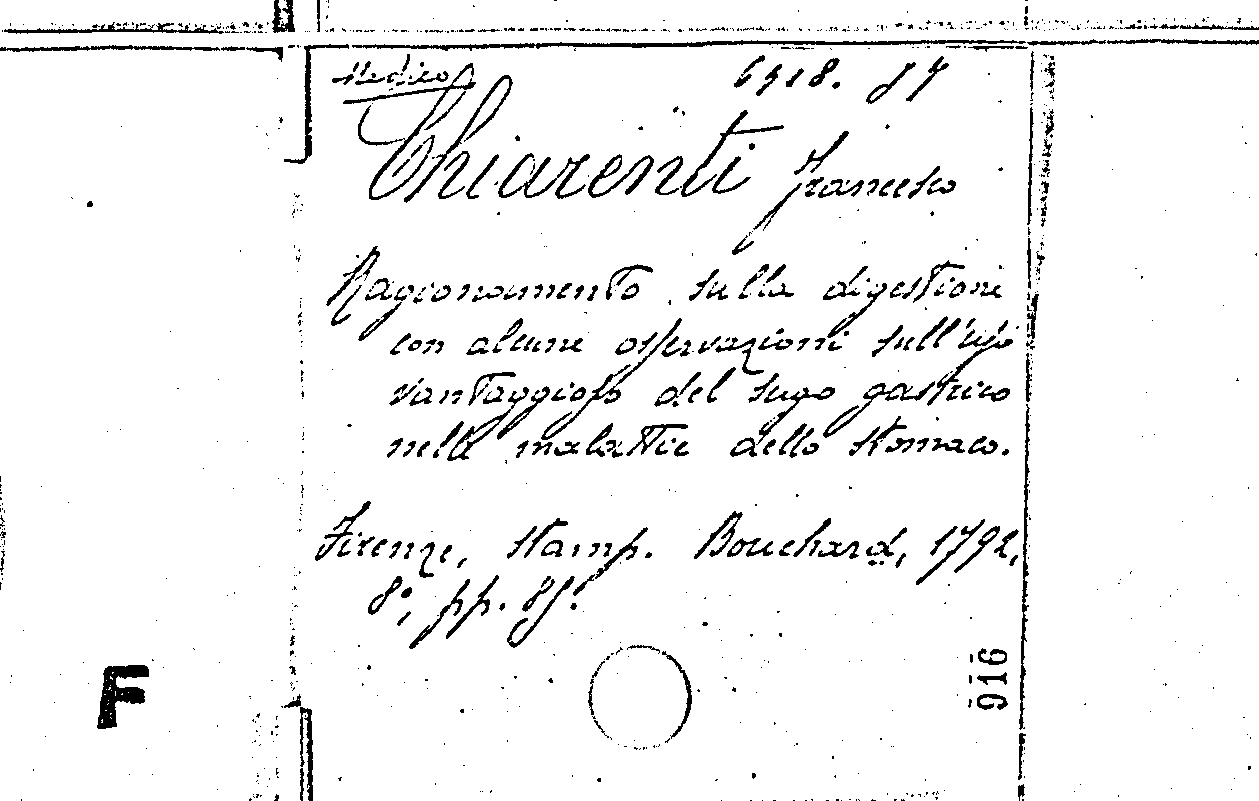 Medico
6918. 87
Chiarenti Francesco
Ragionamento sulla digestione
con alcune osservazioni sull'uso
vantaggioso del sugo gastrico
nelle malattie dello stomaco.
Firenze, stamp. Bouchard, 1792.
8°, pp.
916
F